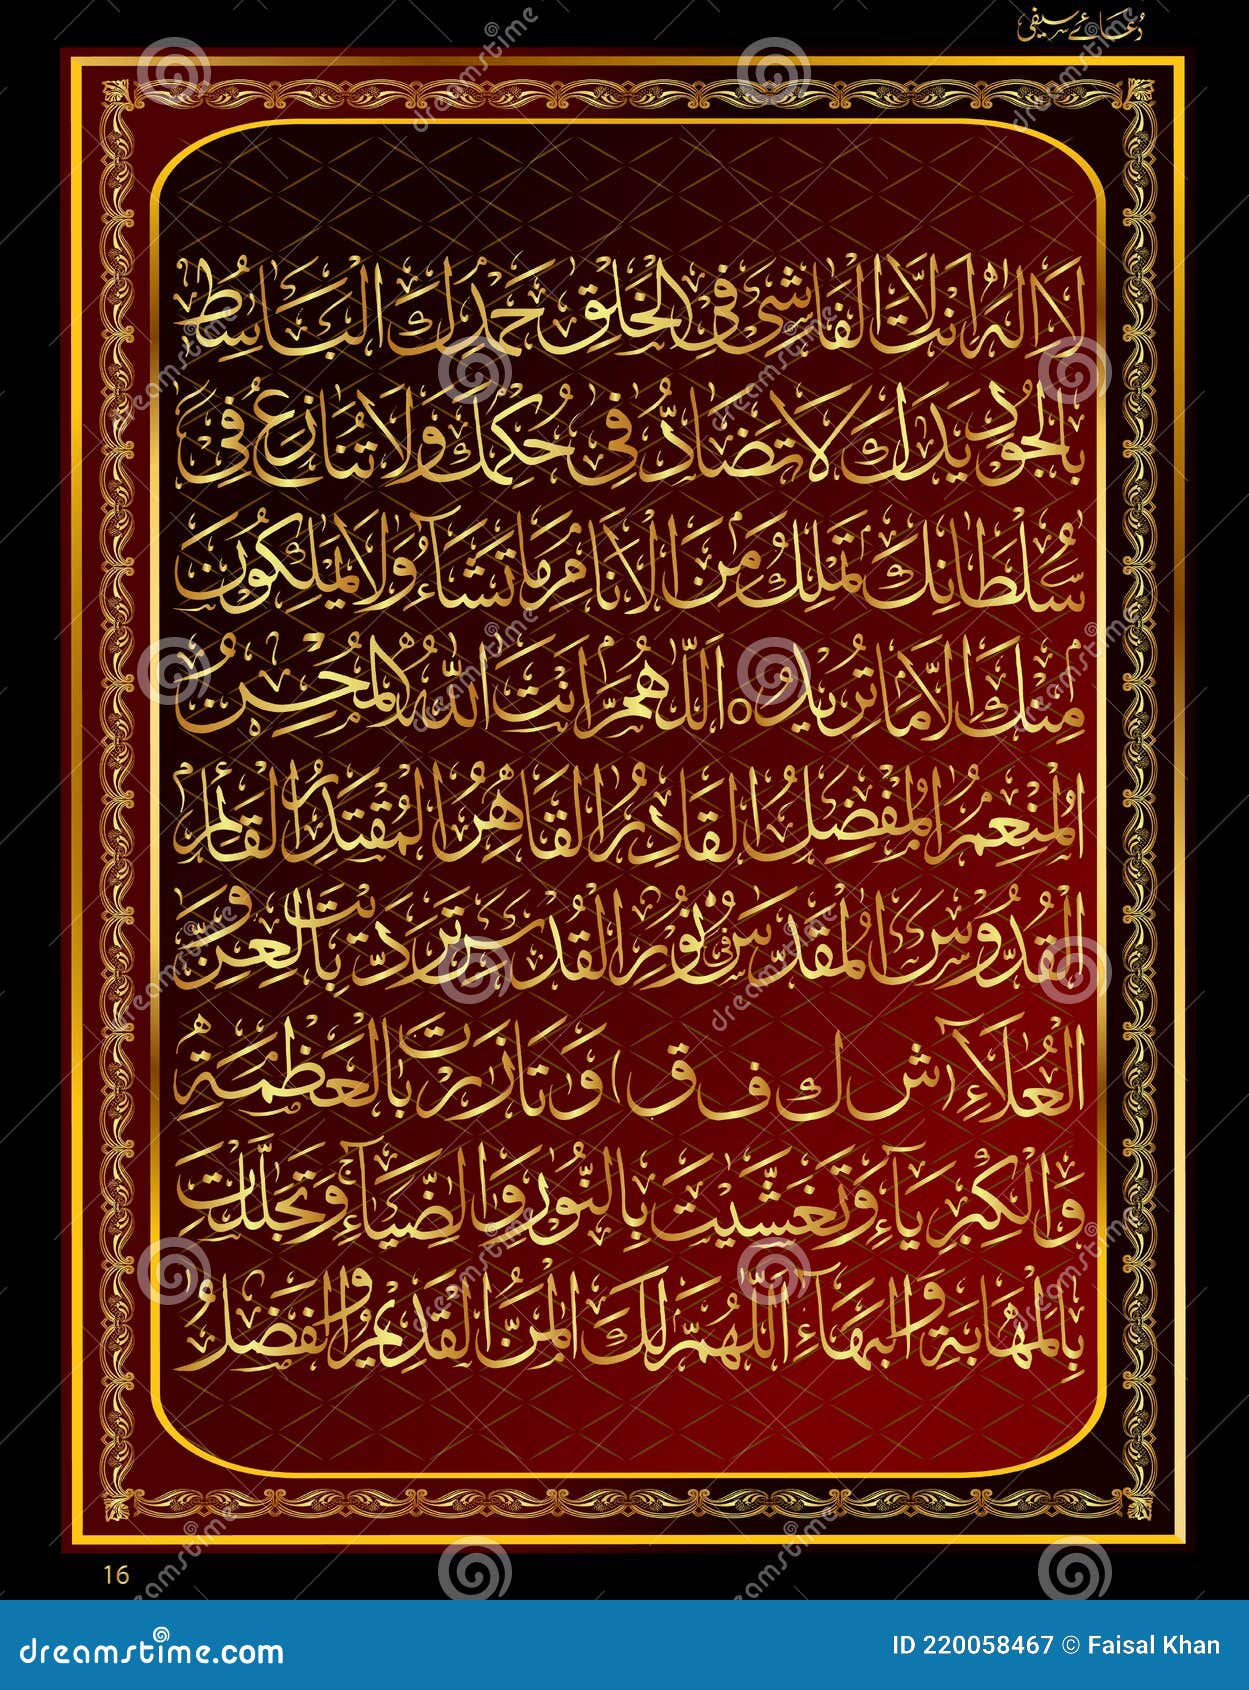 دُعائے سیفی
لَا اِلٰهَ اِلَّا اَنْتَ الْفَاشِیْ فِی الْخَلْقِ حَمْدُكَ الْبَاسِطُ
بِالْجُوْدِ یَدَكَ لَا تُضَادُّ فِیْ حُكْمِكَ وَلَا تُنَازَعُ فِیْ
سُلْطَانِكَ تَمْلِكُ مِنَ الْاَنَامِ مَا تَشَآءُ وَلَا یَمْلِكُوْنَ
مِنْكَ اِلَّا مَا تُرِیْدُ ○ اَللّٰهُمَّ اَنْتَ اللّٰهُ الْمُحْسِنُ
الْمُنْعِمُ الْمُفْضِلُ الْقَادِرُ الْقَاهِرُ الْمُقْتَدِرُ الْقَائِمُ
الْقُدُّوْسُ الْمُقَدَّسُ فِیْ نُوْرِ الْقُدْسِ تَرَدَّیْتَ بِالْعِزِّ وَ
الْعُلَآءِ (ش ك ف ق) وَ تَازَرْتَ بِالْعَظْمَةِ
وَالْكِبْرِیَآءِ وَتَغَشَّیْتَ بِالنُّوْرِ وَالضِّیَآءِ وَتَجَلَّلْتَ
بِالْمَهَابَةِ وَالْبَهَآءِ اَللّٰهُمَّ لَكَ الْمَنُّ الْقَدِیْمُ وَالْفَضْلُ
16
dreamstime.com
ID 220058467 © Faisal Khan